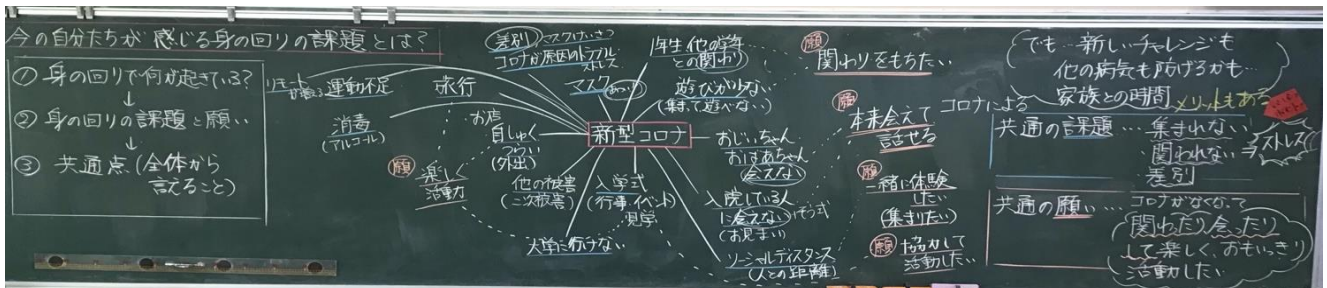 今の自分たちが感じる身の回りの課題とは？
① 身の回りで何が起きている？
↓
② 身の回りの課題と願い
↓
③ 共通点（全体から
言えること）
リモート
運動不足
旅行
消毒
（アルコール）
お店
自しゅく
つらい
（外出）
願
楽しく
活動
他の被害
（二次被害）
大学に行けない
入学式
（行事・イベント）
見学
差別
マスクけいさつ
コロナが原因のトラブル
ストレス
マスク
新型コロナ
1年生 他の学年
との関わり
遊びが少ない
（集まって遊べない）
おじいちゃん
おばあちゃん
会えない
入院している人
に会えない
（お見まい）
そう式
ソーシャルディスタンス
（人との距離）
願
関わりをもちたい
願
本来会えて
話せる
願
一緒に体験
したい
（集まりたい）
願
協力して
活動したい
でも…新しいチャレンジも
他の病気も防げるかも…
家族との時間
メリットもある
コロナによる
共通の課題…集まれない
関われない
差別
⇒ストレス
共通の願い…コロナがなくなって
関わったり会ったり
して楽しく、おもいっきり
活動したい